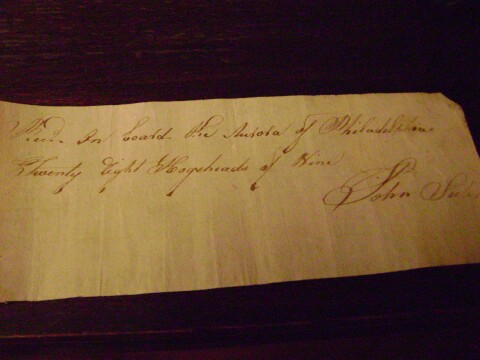 on board the Aurora of Philadelphia
Twenty Eight Hogsheads of Wine
John